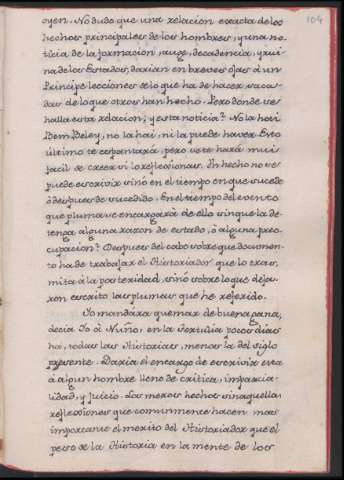 104
oyen. No dudo que una relacion exacta de los
hechos principales de los hombres, y una no-
ticia de la formacion, auge, decadencia, y rui
na de los Estados, darian en breves ojas á un
Principe lecciones de lo que ha de hacer, saca-
das de lo que otros han hecho. Pero donde se
halla esta relacion, y esta noticia? No la hai
Bem Beley, no la hai, ni la puede haver. Esto
último te espantará, pero se te hará mui
facil de creer si lo reflexionas. Un hecho no se
puede escrivir sinó en el tiempo en que sucede
ó despues de sucedido. En el tiempo del evento
que pluma se encargará de ello sin que la de-
tenga alguna razon de estado, ó alguna preo-
cupacion? Despues del cabo sobre que documen-
to ha de trabajar el Historiador que lo tras-
mita á la posteridad, sinó sobre lo que deja-
ron escrito las plumas que he referido.
Yo mandára quemar de buena gana,
decia Yo á Nuño, en la Tertulia pocos dias
há, todas las Historias, menos la del siglo
presente. Daria el encargo de escrivir esta
á algun hombre lleno de critica, imparcia-
lidad, y juicio. Los meros hechos sin aquellas
reflexiones que comunmente hacen mas
importante el merito del Historiador que el
peso de la Historia en la mente de los